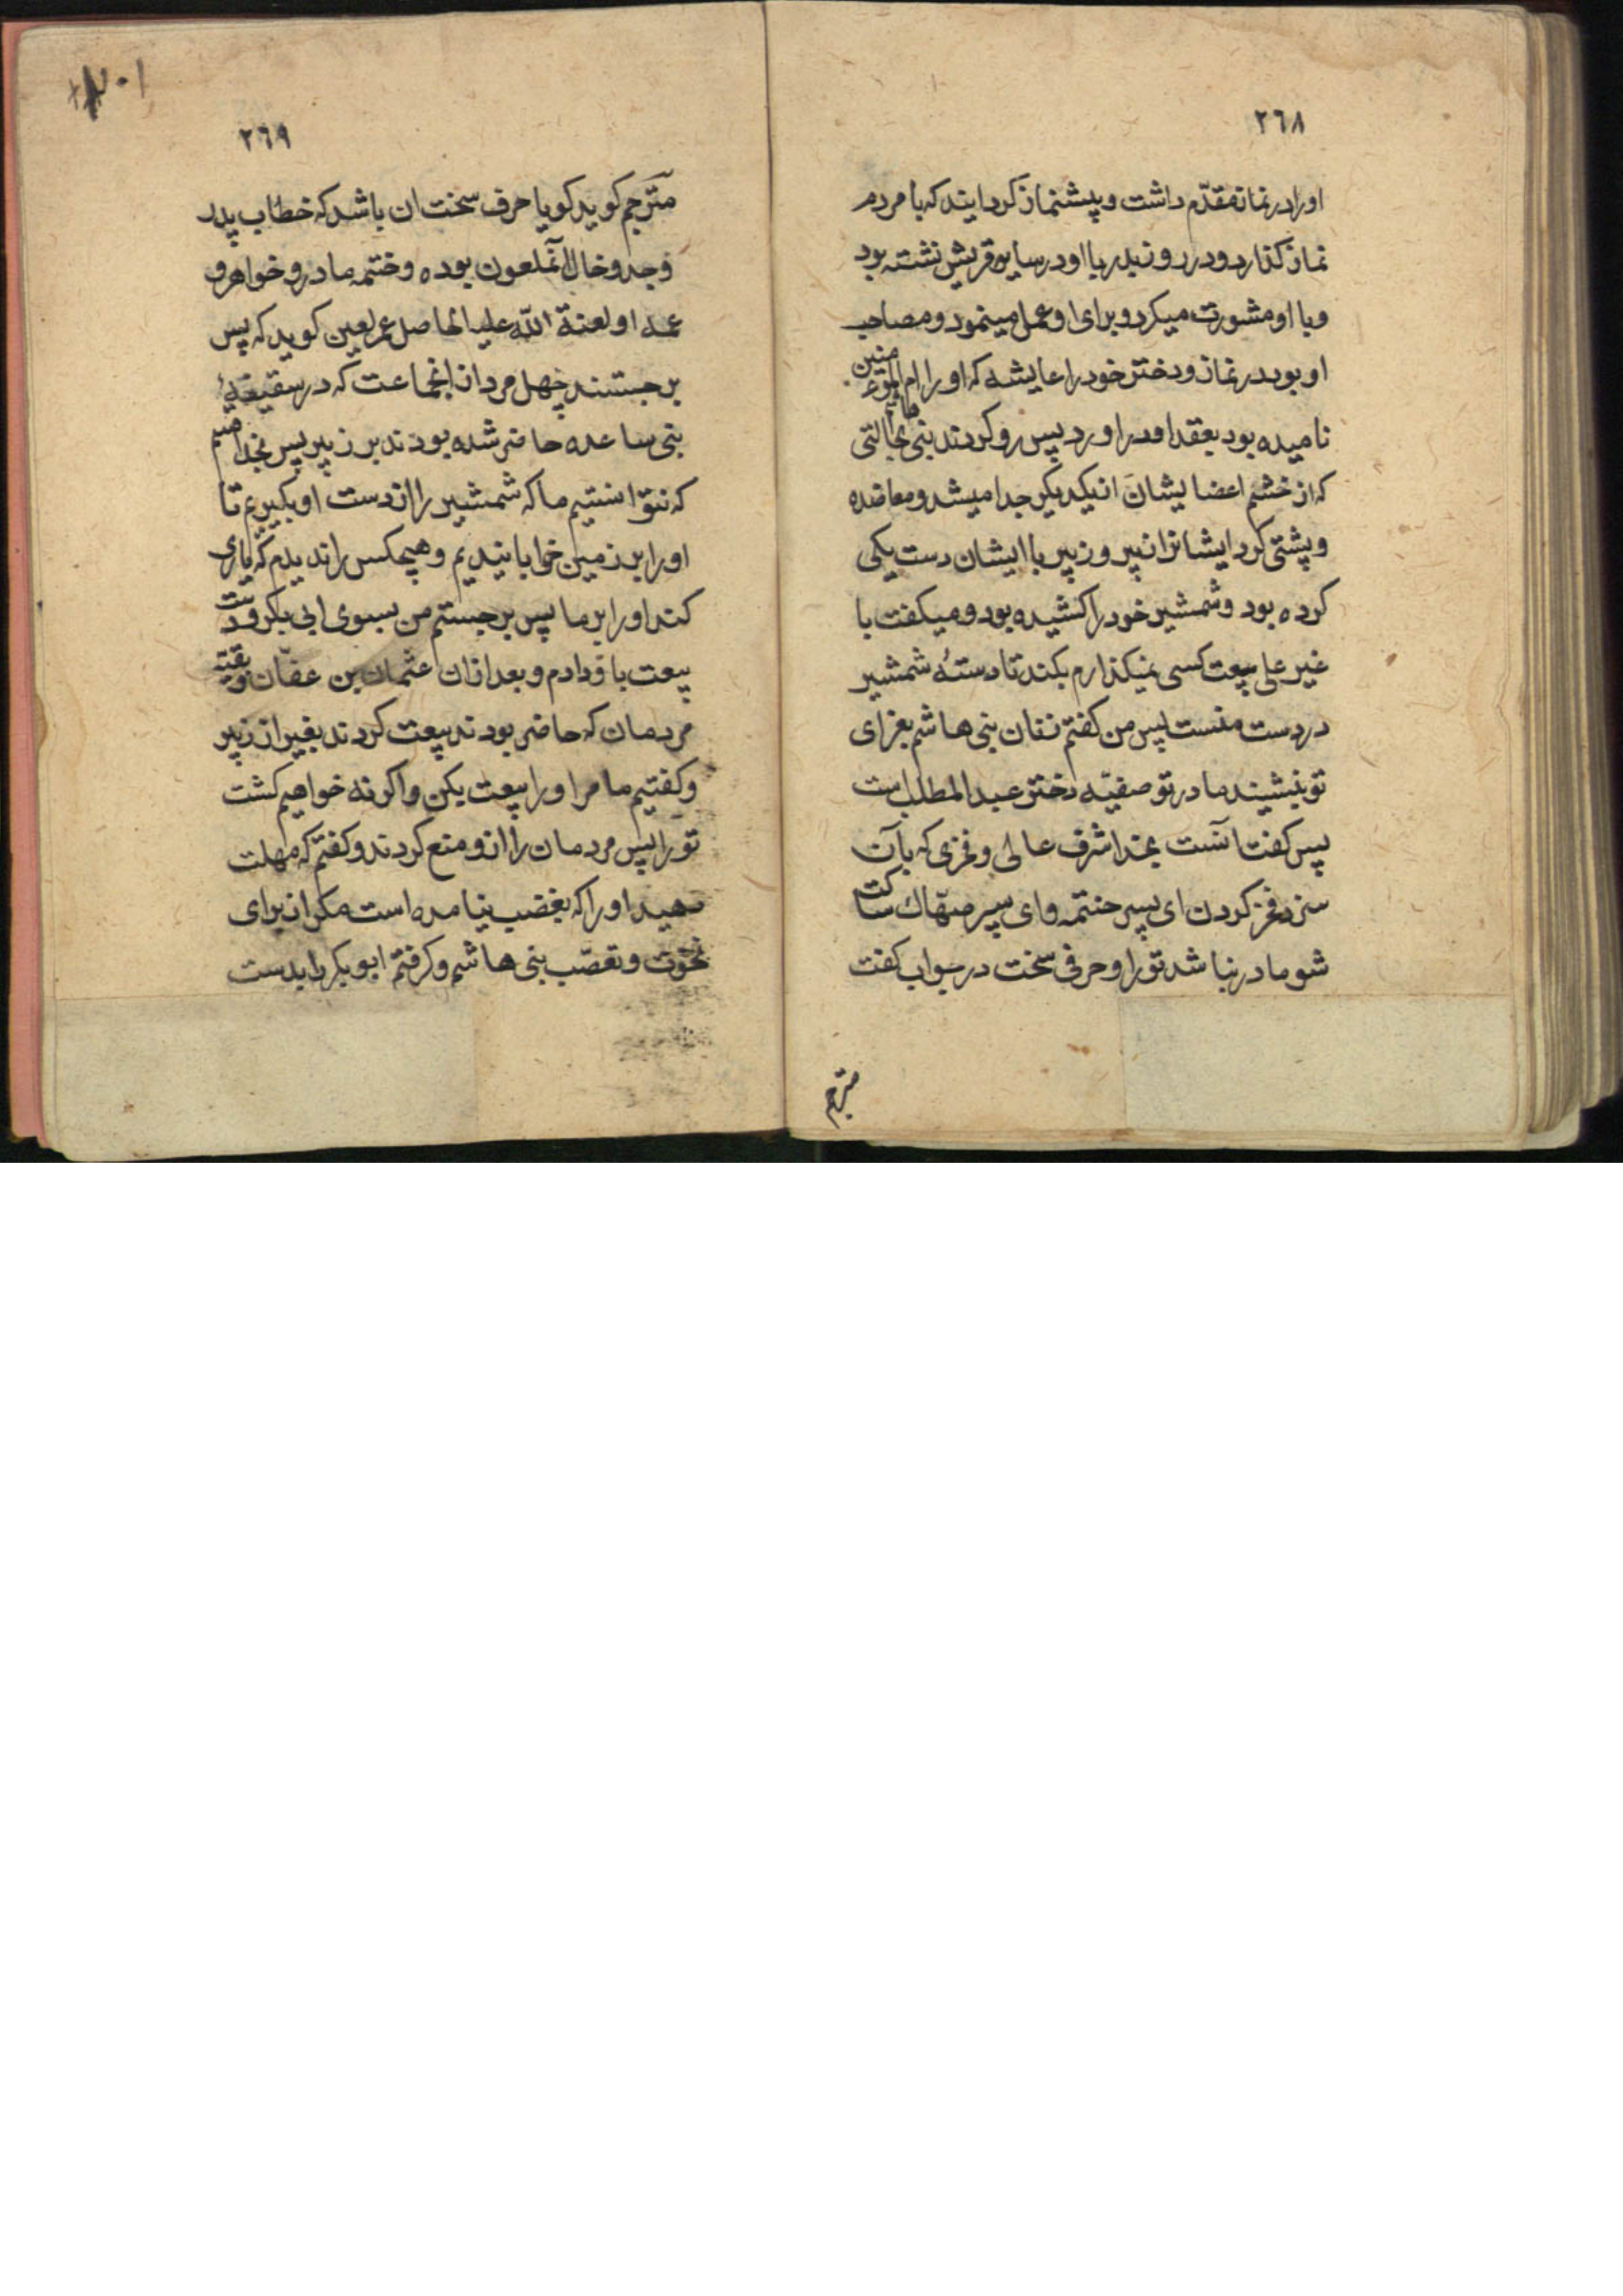 ٢٦٨
او را در نماز مقدّم داشت و پیشنماز کردایند که با مردم
نماز کذارد و در روز بدر با او در سایه قریش نشسته بود
و با او مشورت میکرد و برای او عمل مینمود و مصاحب
او بود در نماز و دختر خود را عایشه که او را ام المؤمنین
نامیده بود بعقد او در اورد پس رو کردند بنی هاشم بحالتی
که از خشم اعضا یشان از یکدیکر جدا میشد و معاضده
و پشتی کرد ایشانرا زبیر و زبیر با ایشان دست یکی
کرده بود و شمشیر خود را کشیده بود و میکفت با
غیر علی بیعت کسی نمیکذارم بکند تا دستهٔ شمشیر
در دست منست پس من کفتم زنان بنی هاشم بعزای
تو بنشینند مادر تو صفیّه دختر عبد المطلب است
پس کفت آنست بخدا شرف عالی و فخری که بآن
سزد فخر کردن ای پسر حنتمه و ای پسر صهّاک ساکت
شو مادر نباشد تو را و حرفی سخت در جواب کفت
مترجم
٢٦٩
مترجم کوید کویا حرف سخت ان باشد که خطاب پدر
و جد و خال آنملعون بوده و ختنمه مادر و خواهر و
عمه او لعنة الله علیه الحاصل عمر لعین کوید که پس
بر جستند چهل مرد از انجماعت که در سقیفهٔ
بنی ساعده حاضر شده بودند بر زبیر پس بخدا قسم
که نتوانستیم ما که شمشیر را از دست او بکیریم تا
او را بر زمین خوابانیدیم و هیچکس را ندیدم که یاری
کند او را بر ما پس بر جستم من بسوی ابی بکر و دست
بیعت باو دادم و بعد ازان عثمان بن عفّان و بقیّه
مردمان که حاضر بودند بیعت کردند بغیر از زبیر
و کفتیم ما مر او را بیعت بکن و اکرنه خواهیم کشت
تو را پس مردمان را از و منع کردند و کفتم که مهلت
دهید او را که بغضب نیامده است مکر از برای
نخوت و تعصّب بنی هاشم و کرفتم ابو بکر را بدست